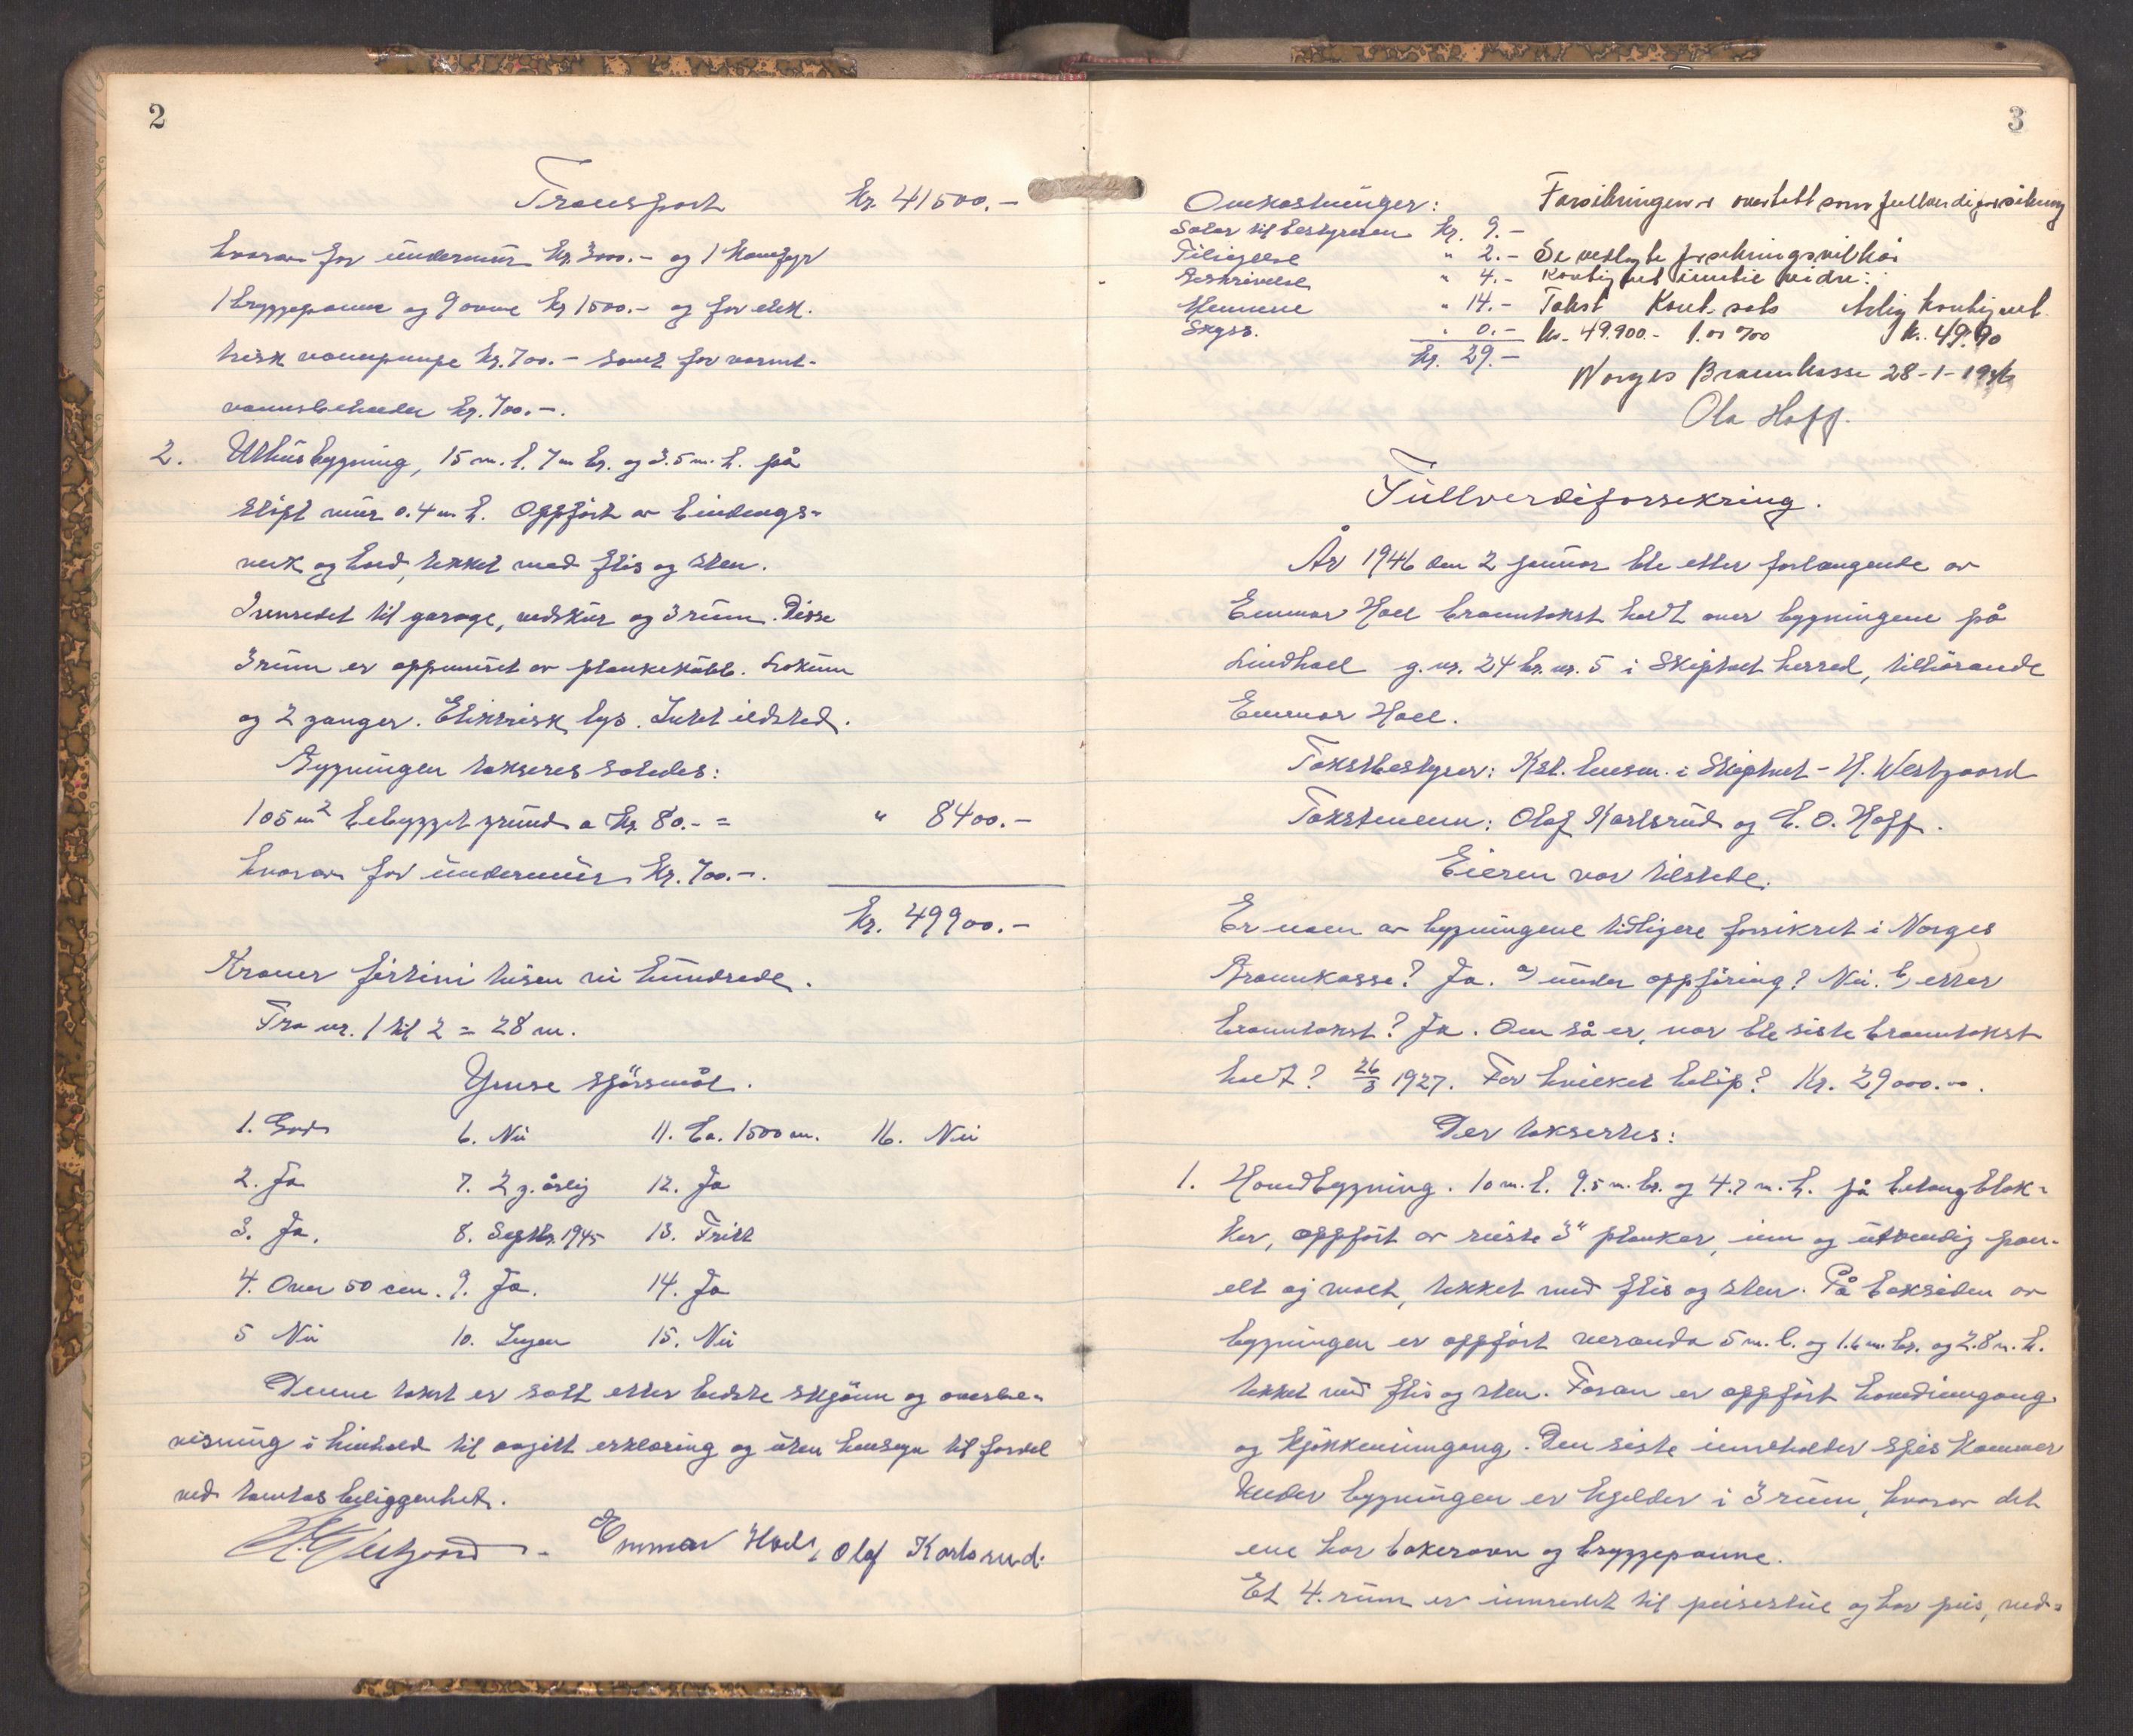 2
Transport kr. 41500.-
hvorav for undermur kr. 3000.- og 1 komfyr
1 bryggepanne og 9 ovne kr 1500.- og for elek.
trisk vannpumpe kr. 700.- samt for varmt-
vannsbeholder kr. 700.-.
2. Uthusbygning, 15 m. l. 7 m br. og 3.5 m. h. på
støpt mur 0.4 m. h. Oppført av bindings-
verk og bord, tekket med flis og sten.
Innredet til garage, vedskur og 3 rum. Disse
3 rum er oppmuret av plankekubb. Lokum
og 2 ganger. Elektrisk lys. Intet ildsted.
Bygningen takseres således:
105 m² bebygget grund a kr. 80.- = " 8400.-
hvorav for undermur kr. 700.-.
kr. 49900.-
Kroner førtini tusen ni hundrede.
Fra nr. 1 til 2 = 28 m.
Ymse spørsmål.
1. God 6. Nei 11. Ca. 1500 m. 16. Nei
2. Ja 7. 2 g. årlig 12. Ja
3. Ja. 8. Septbr. 1945 13. Fritt
4. Over 50 cm. 9. Ja. 14. Ja
5 Nei 10. Ingen 15. Nei
Denne takst er satt etter bedste skjønn og overbe-
visning i henhold til avgitt erklæring og uten hensyn til fordel
ved tomtas beliggenhet.
H. Westgaard - Emmar Hoel, Olaf Karlsrud.
3
Omkostninger: Forsikringen er overtatt som fullverdiforsikring
Salær til bestyreren kr. 9.-
Tilsigelse " 2.- Se vedtagte forsikringsvilkår
Beskrivelse " 4.- Kontingent inntil vidre:
Mennene " 14.- Takst Kont. sats Årlig kontingent.
Skyss. " 0.- kr. 49.900.- 1.oo ‰ kr. 49.90
kr. 29.-
Norges Brannkasse 28-1-1946
Ola Hoff.
Fullverdiforsikring.
År 1946 den 2 januar ble etter forlangende av
Emmar Hoel branntakst holdt over bygningene på
Lindhoel g. nr. 24 br. nr. 5 i Skiptvet herred, tilhørende
Emmar Hoel.
Takstbestyrer: Kst. lensm. i Skiptvet - H. Westgaard
Takstmenn: Olaf Karlsrud og E. O. Hoff.
Eieren var tilstede.
Er noen av bygningene tidligere forsikret i Norges
Brannkasse? Ja. a) under oppføring? Nei. b) etter
branntakst? Ja. Om så er, når ble siste branntakst
holdt? 26/3 1927. For hvilket beløp? Kr. 29000.oo.
Der taksertes:
1. Hovedbygning. 10 m. l. 9.5 m. br. og 4.7 m. h. på betongblok-
ker, oppført av reiste 3" planker, inn og utvendig pan-
elt og malt, tekket med flis og sten. På baksiden av
bygningen er oppført veranda 5 m. l. og 1.6 m. br. og 2.8 m. h.
tekket med flis og sten. Foran er oppført hovedinngang
og kjøkkeninngang. Den siste inneholder spiskammer
Under bygningen er kjelder i 3 rum, hvorav det
ene har bakerovn og bryggepanne.
Et 4. rum er innredet til peisestue og har peis, ved-